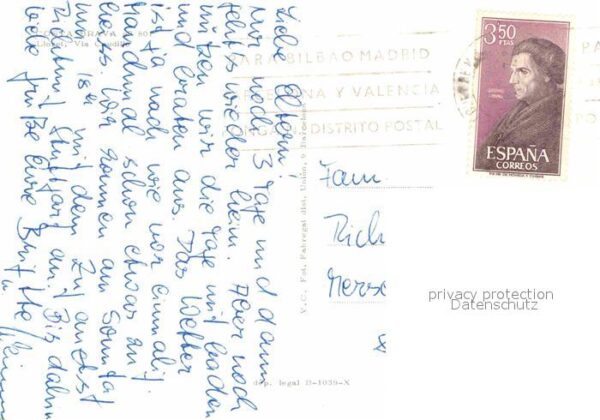 COSTA BRAVA
Lloret, Via
Liebe Eltern!
Nur noch 3 Tage und dann
geht's wieder heim. Aber noch
nützen wir die Tage mit baden
und braten aus. Das Wetter
ist ja nach wie vor einmalig.
Manchmal schon etwas zu
heiss. Wir kommen am Sonntag
um 18 mit dem Zug
in Stuttgart an. Bis dahin
viele Grüße Eure
V.C. Fot. Fabregat dist. Union, 9 Barcelona
dep. legal B-1039-X
PARA BILBAO MADRID
Y VALENCIA
DISTRITO POSTAL
3,50
PTAS
ESPAÑA
CORREOS
Fam
Rich
Merse
privacy protection
Datenschutz